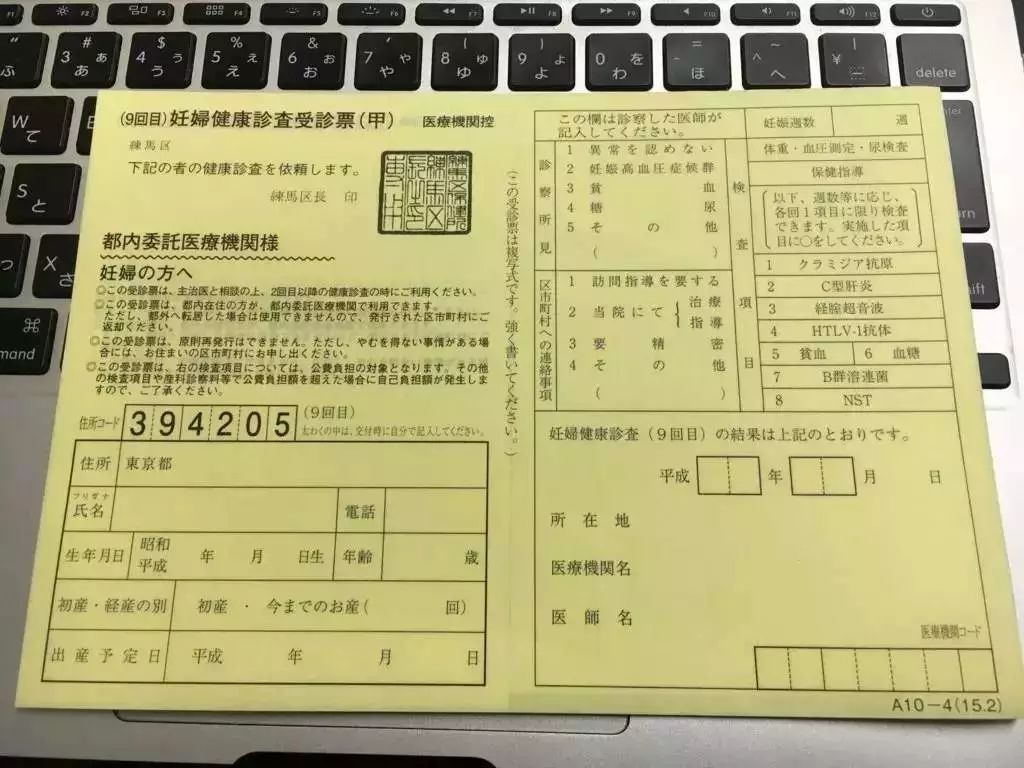 (9回目) 妊婦健康診査受診票(甲) 医療機関控
練馬区
下記の者の健康診査を依頼します。
練馬区長 印
都内委託医療機関様
妊婦の方へ
◎この受診票は、主治医と相談の上、2回目以降の健康診査の時にご利用ください。
◎この受診票は、都内在住の方が、都内委託医療機関で利用できます。
ただし、都外へ転居した場合は使用できませんので、発行された区市町村にご
返却ください。
◎この受診票は、原則再発行はできません。ただし、やむを得ない事情がある場
合には、お住まいの区市町村にお申し出ください。
◎この受診票は、右の検査項目については、公費負担の対象となります。その他
の検査項目や産科診察料等で公費負担額を超えた場合に自己負担額が発生しま
すので、ご了承ください。
住所コード 394205 (9回目)
太わくの中は、交付時に自分で記入してください。
住所 東京都
フリガナ
氏名 電話
生年月日 昭和 平成 年 月 日生 年齢 歳
初産・経産の別 初産 ・ 今までのお産( 回)
出産予定日 平成 年 月 日
(この受診票は複写式です。強く書いてください。)
この欄は診察した医師が
記入してください。
診察所見
1 異常を認めない
2 妊娠高血圧症候群
3 貧血
4 糖尿
5 その他
( )
区市町村への連絡事項
1 訪問指導を要する
2 当院にて { 治療 指導
3 要精密
4 その他
( )
検査項目
妊娠週数 週
体重・血圧測定・尿検査
保健指導
以下、週数等に応じ、
各回1項目に限り検査
できます。実施した項
目に○をしてください。
1 クラミジア抗原
2 C型肝炎
3 経腟超音波
4 HTLV-1抗体
5 貧血 6 血糖
7 B群溶連菌
8 NST
妊婦健康診査(9回目)の結果は上記のとおりです。
平成 年 月 日
所在地
医療機関名
医師名
医療機関コード
A10-4(15.2)
F2
F3
F4
F5
F6
F7
F8
F9
F10
F11
F12
# 3 あ ぁ
$ 4 う ぅ
% 5 え ぇ
& 6 お ぉ
' 7 や ゃ
( 8 ゆ ゅ
) 9 よ ょ
0 わ を
= - ほ
~ ^ へ
| ¥ ー
delete
ふ
W て
S と
X さ
っ つ
⌘
mand